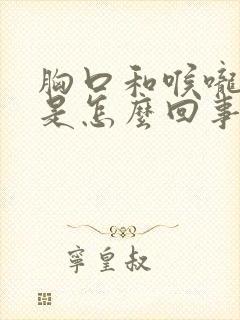 胸口和喉嚨
是怎麼回事
寧皇叔